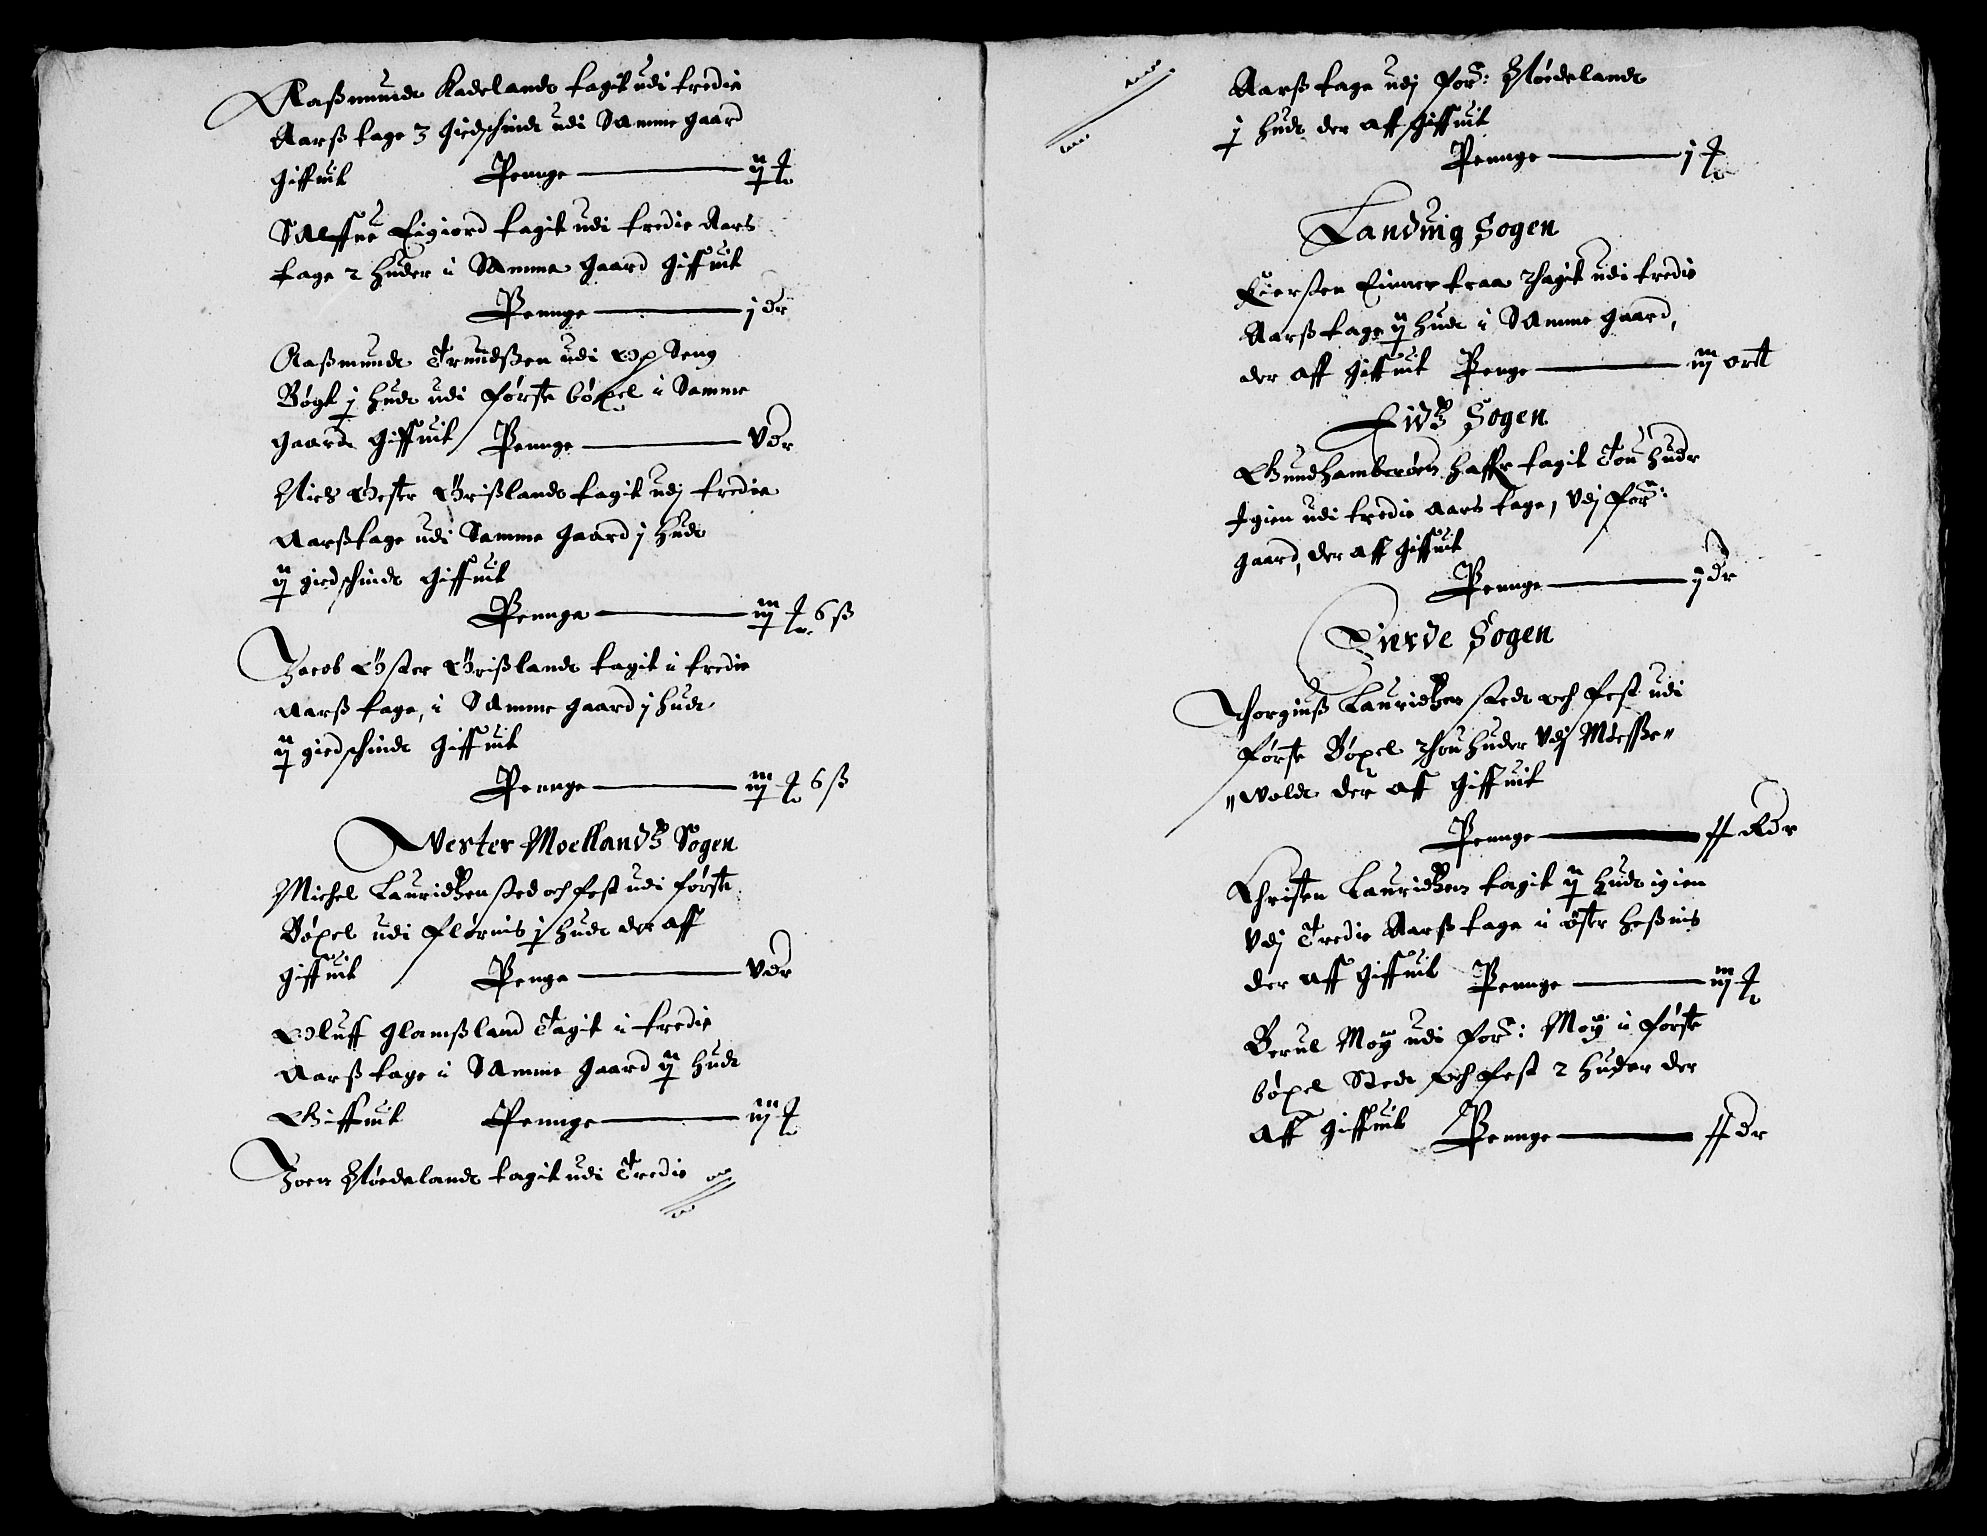 Raßmundt Kadelandt tagit udi tredie
Aarß tage 3 giedschindt udi Samme gaard
giffuit Pennge
Eigiord tagit udi tredie Aars
tage 2 huder i Samme gaard giffuit
Pennge j dr
Raßmundt Trundßen udi
Bøgt j hudt udi første bøxel i Samme
gaardt giffuit Pennge V dr
Niels Vestr Grißlandt tagit udj tredie
Aarßtage udi Samme gaard j hudt
ij giedschindt giffuit
Pennge iij 6 ß
Jacob Øster Grißlandt tagit i tredie
Aarß tage, i Samme gaard j hudt
ij giedschindt giffuit
Pennge iij 6 ß
Vester Moellandz Sogen
Michel Lauridtzen sted och fest udi første
Bøxel udi Flørnis j hudt der aff
giffuit Penge V dr
Oluff Glamßland Tagit i tredie
Aarß tage i Samme gaard ij hudt
Giffuit Pennge iij
Joen Nøedelandt tagit udi Tredie
Aarß tage udj for: Nøedelandt
j hudt der aff giffuit
Pennge j
Landuig Sogen
Kiersten thagit udi tredie
Aarß tage ij hudt i Samme gaard,
der aff giffuit Penge iij ortt
Eidz Sogen
haffr tagit Tou hudr
Igien udi tredie aars tage, Vdj for:
gaard, der aff giffuit
Pennge j dr
Sogen
Thorgiuß Lauridtzen stedt och fest udi
første Bøxel thou huder Vdj Moesse=
=voldt der aff giffuit
Pennge ij Rdr
Christen Lauridtzen tagit ij hudt igien
Vdj Tredie Aarß tage i østr Heßnis
der aff giffuit Pennge iij
Berul Moy udi for: Moy i første
bøxel Stedt och fest 2 huder der
aff giffuit Pennge ij dr